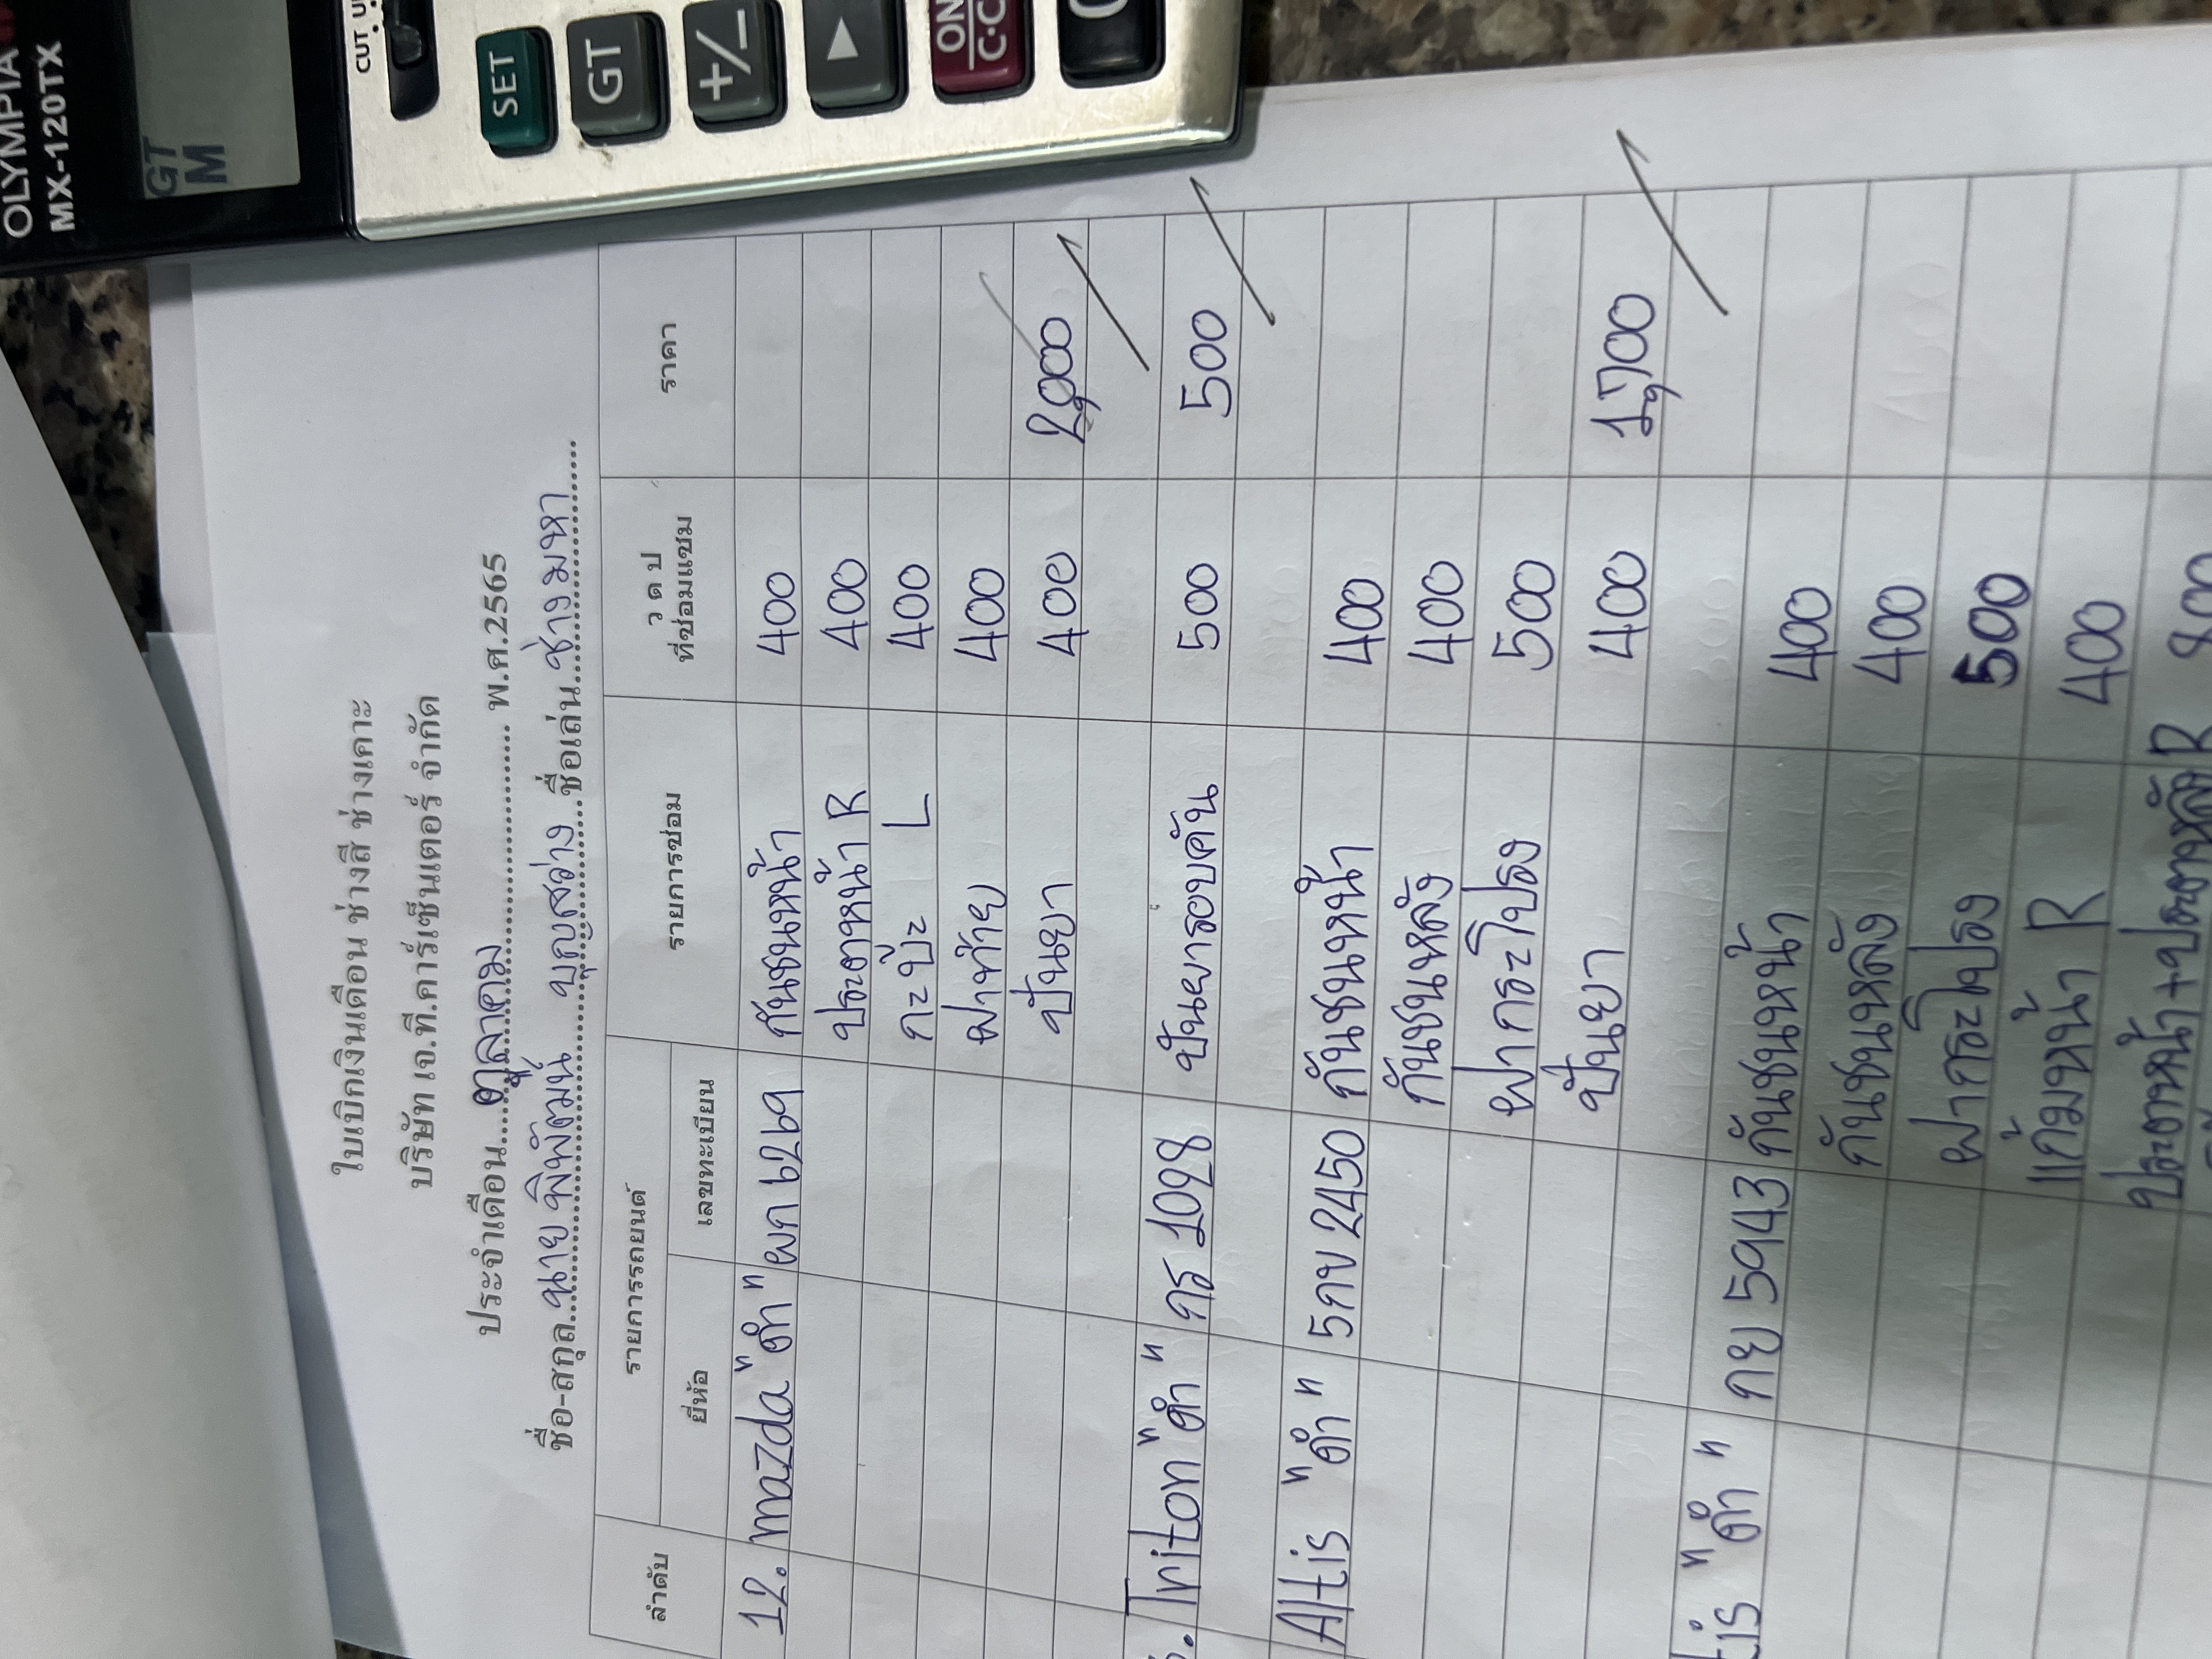 OLYMPIA
MX-120TX
GT
M
CUT
SET
GT
+/−
▶
ON
C·C
ใบเบิกเงินเดือน ช่างสี ช่างเคาะ
บริษัท เจ.ที.คาร์เซ็นเตอร์ จำกัด
ประจำเดือน....ตุลาคม.... พ.ศ.2565
ชื่อ-สกุล..นาย พิพัฒน์ บุญสว่าง..ชื่อเล่น..ช่างมหา....
ลำดับ รายการรถยนต์ รายการซ่อม ว ด ป ที่ซ่อมแซม ราคา
ยี่ห้อ เลขทะเบียน
12. mazda "ดำ" ผก 6269 กันชนหน้า 400
ประตูหน้า R 400
กะบะ L 400
ฝาท้าย 400
ปั่นยา 400 2,000
Triton "ดำ" กร 1098 ปั่นยารอบคัน 500 500
Altis "ดำ" 5กข 2450 กันชนหน้า 400
กันชนหลัง 400
ฝากระโปรง 500
ปั่นยา 400 1,700
tis "ดำ" กย 5943 กันชนหน้า 400
กันชนหลัง 400
ฝากระโปรง 500
แก้มหน้า R 400
ประตูหน้า+ประตูหลัง R 800